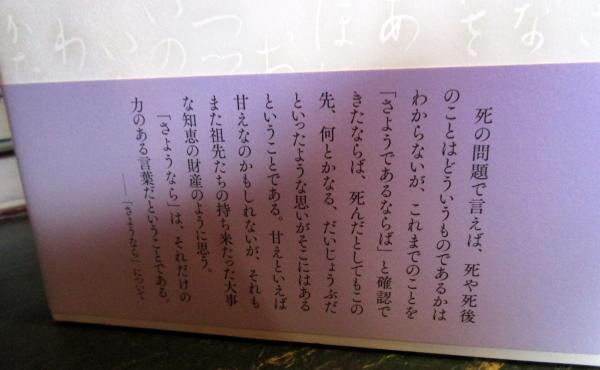 死の問題で言えば、死や死後
のことはどういうものであるかは
わからないが、これまでのことを
「さようであるならば」と確認で
きたならば、死んだとしてもこの
先、何とかなる、だいじょうぶだ
といったような思いがそこにはある
ということである。甘えといえば
甘えなのかもしれないが、それも
また祖先たちの持ち来たった大事
な知恵の財産のように思う。
「さようなら」は、それだけの
力のある言葉だということである。
──「「さようなら」について」